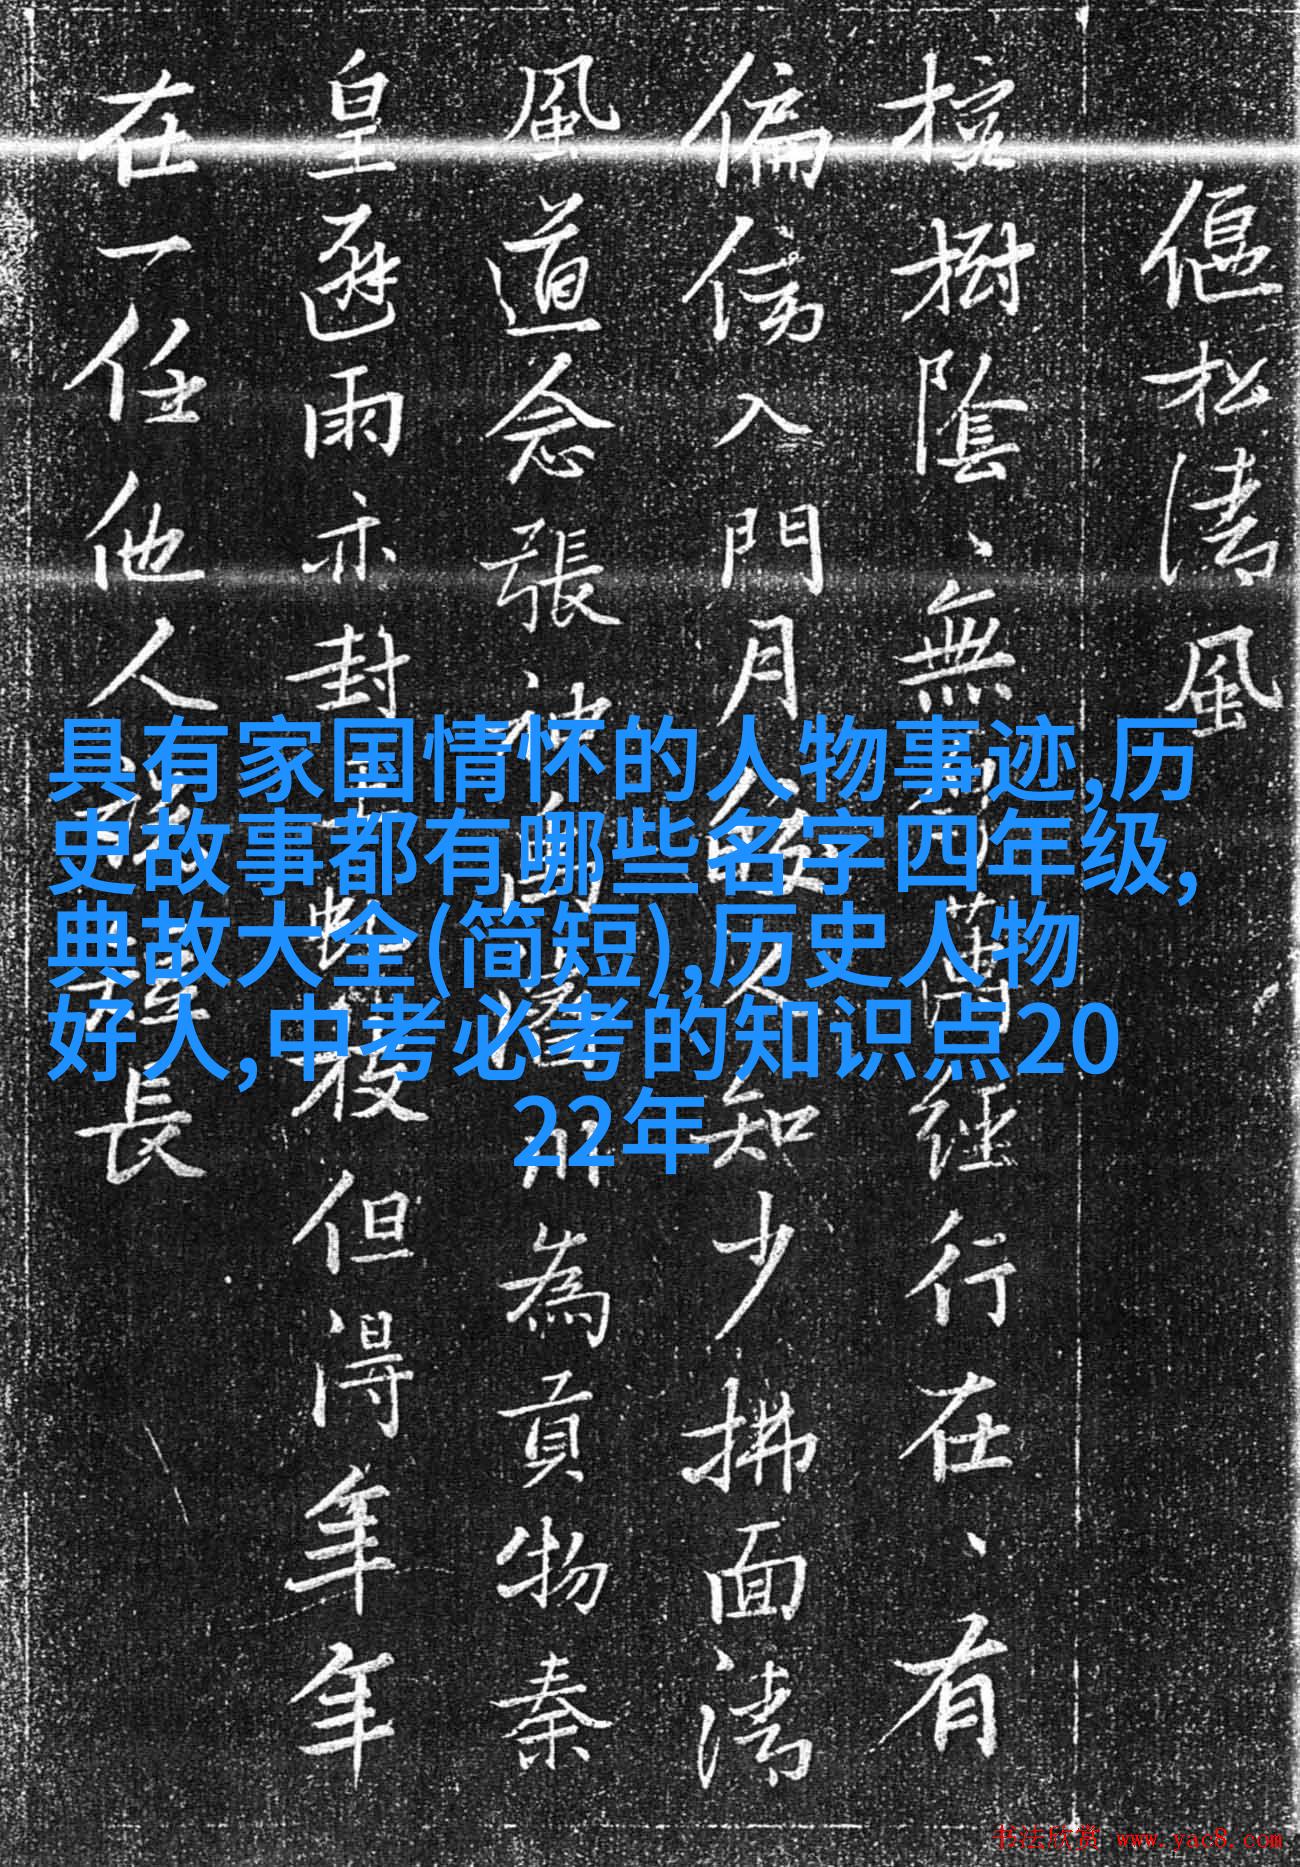 偃松清風
檀樹陰、無經行在、有
偏傍入門月人知少拂面清
風道念張神禹州為貢物秦
皇避雨亦封枝但得年年
在一任他人長
具有家国情怀的人物事迹,历
史故事都有哪些名字四年级,
典故大全(简短),历史人物
好人,中考必考的知识点20
22年
书法欣赏 www.yac8.com